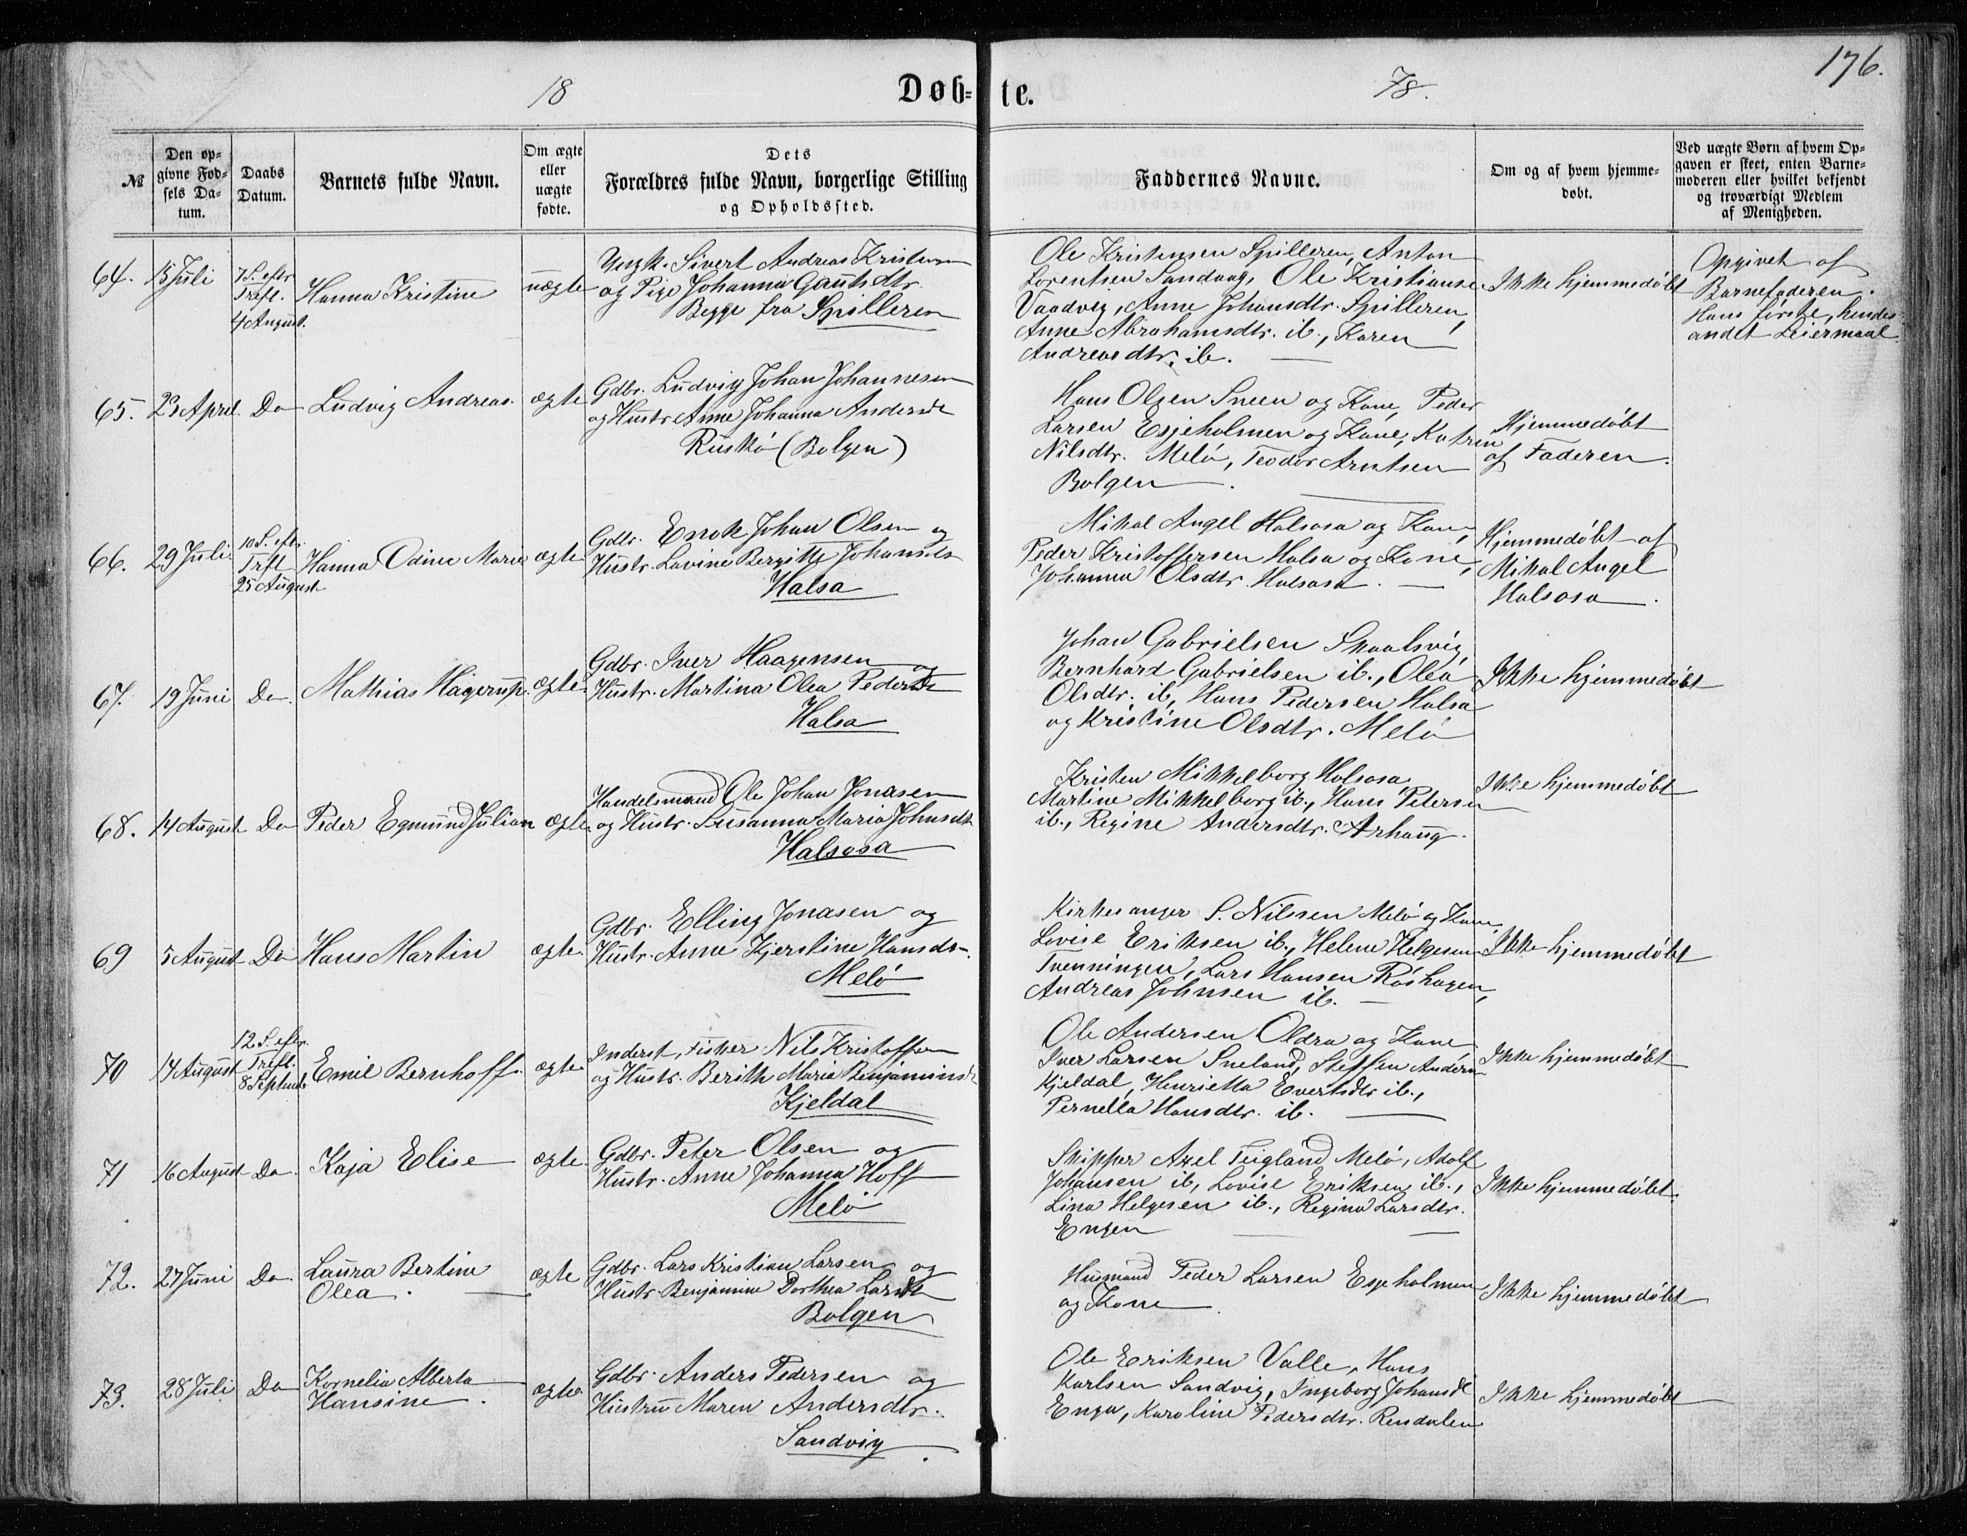 176.
18 Døb-te. 78.
№
Den op-
givne Fød-
sels Da-
tum.
Daabs
Datum.
Barnets fulde Navn.
Om ægte
eller
uægte
fødte.
Dets
Forældres fulde Navn, borgerlige Stilling
og Opholdssted.
Faddernes Navne.
Om og af hvem hjemme-
døbt.
Ved uægte Børn af hvem Op-
gaven er skeet, enten Barne-
moderen eller hvilket bekjendt
og troværdigt Medlem
af Menigheden.
64. 15 Juli
7 S. efter
Treft.
4 August.
Hanna Kristine
uægte
Ungk. Sivert Andreas Kristensen
og Pige Johanna Gautsdtr.
Begge fra Spilleren
Ole Kristensen Spilleren, Anton
Lorentsen Sandaag, Ole Kristianse
Vaadvig, Anne Johansdtr. Spilleren,
Anne Abrahamsdtr. ib., Karen
Andreasdtr. ib.
Ikke hjemmedøbt
Opgivet af
Barnefaderen.
Hans første, hendes
andet Leiermaal
65. 23 April. Do Ludvig Andreas. ægte
Gdbr. Ludvig Johan Johannesen
og Hustr. Anne Johanna Andersdr
Ruskö (Bolgen)
Hans Olsen Sneen og Kone, Peder
Larsen Esjeholmen og Kone, Katren
Nilsdtr. Melö, Teodor Arntsen
Bolgen
Hjemmedøbt
af Faderen.
66. 29 Juli.
10 S. eftr.
Trft.
25 August
Hanna Odine Marie ægte
Gdbr. Enok Johan Olsen og
Hustr. Lavine Bergitte Johansdr
Halsa
Mikal Angel Halsosa og Kone,
Peder Kristoffersen Halsa og Kone,
Johanna Olsdtr. Halsosa.
Hjemmedøbt af
Mikal Angel
Halsosa.
67. 19 Juni Do. Mathias Hagerup. ægte.
Gdbr. Iver Haagensen og
Hustr. Martina Olea Pedersdr
Halsa
Johan Gabrielsen Skaalsvig,
Bernhard Gabrielsen ib., Olea
Olsdtr. ib, Hans Pedersen Halsa
og Kristine Olsdtr. Melö
Ikke hjemmedøbt
68. 14 August Do Peder Egmund Julian ægte
Handelsmand Ole Johan Jonasen
og Hustr. Susanna Maria Johnsdtr
Halsosa
Kristen Mikkelborg Halsosa,
Martine Mikkelborg ib., Hans Petersen
ib., Regine Andersdtr. Arhaug.
Ikke hjemmedøbt
69 5 August Do Hans Martin ægte.
Gdbr. Elling Jonasen og
Hustr. Anne Kjerstine Hansdr.
Melö
Kirkesanger S. Nilsen Melö og Kone,
Lovise Eriksen ib., Helene Helgesen
Trenningen, Lars Hansen Röshagen,
Andreas Johnsen ib.
Ikke hjemmedøbt
70 14 August
12 S. eftr.
Trefl.
8 Septmb
Emil Bernhoff. ægte.
Inderst, Fisker Nils Kristoffersen
og Hustr. Berith Maria Benjaminsdr
Kjeldal
Ole Andersen Oldra og Kone
Iver Larsen Sneland, Steffen Andersen
Kjeldal, Henrietta Evertsdtr ib.,
Pernella Hansdtr. ib.
Ikke hjemmedøbt
71 16 August Do. Kaja Elise ægte.
Gdbr. Peter Olsen og
Hustr. Anne Johanna Hoff
Melö
Skipper Axel Teigland Melö, Adolf
Johansen ib, Lovise Eriksen ib.,
Lina Helgesen ib., Regina Larsdtr.
Engen
Ikke hjemmedøbt.
72. 27 Juni Do.
Laura Bertine
Olea.
ægte
Gdbr. Lars Kristian Larsen og
Hustr. Benjamine Dorthea Larsdr
Bolgen
Husmand Peder Larsen Esjeholmen
og Kone
Ikke hjemmedøbt
73. 28 Juli Do
Kornelia Alberta
Hansine.
ægte
Gdbr. Anders Pedersen og
Hustru Maren Andersdtr.
Sandvig
Ole Eriksen Valle, Hans
Karlsen Sandvig, Ingeborg Johansdr
Enga, Karoline Pedersdtr. Rendalen
Ikke hjemmedøbt